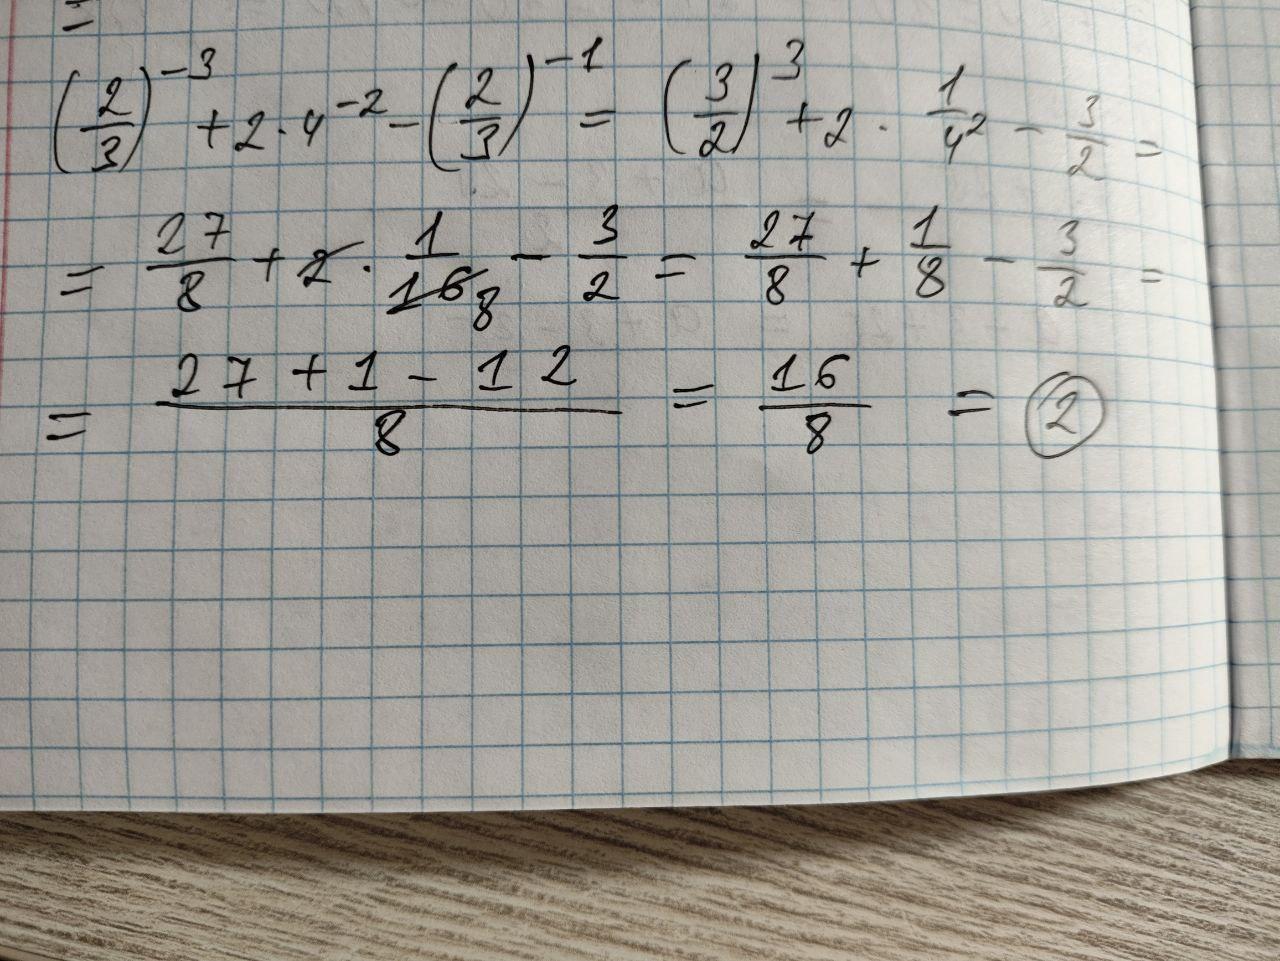 =
(2/3)^-3 + 2 · 4^-2 - (2/3)^-1 = (3/2)^3 + 2 · 1/4^2 - 3/2 =
= 27/8 + 2 · 1/16 8 - 3/2 = 27/8 + 1/8 - 3/2 =
= (27 + 1 - 12)/8 = 16/8 = 2